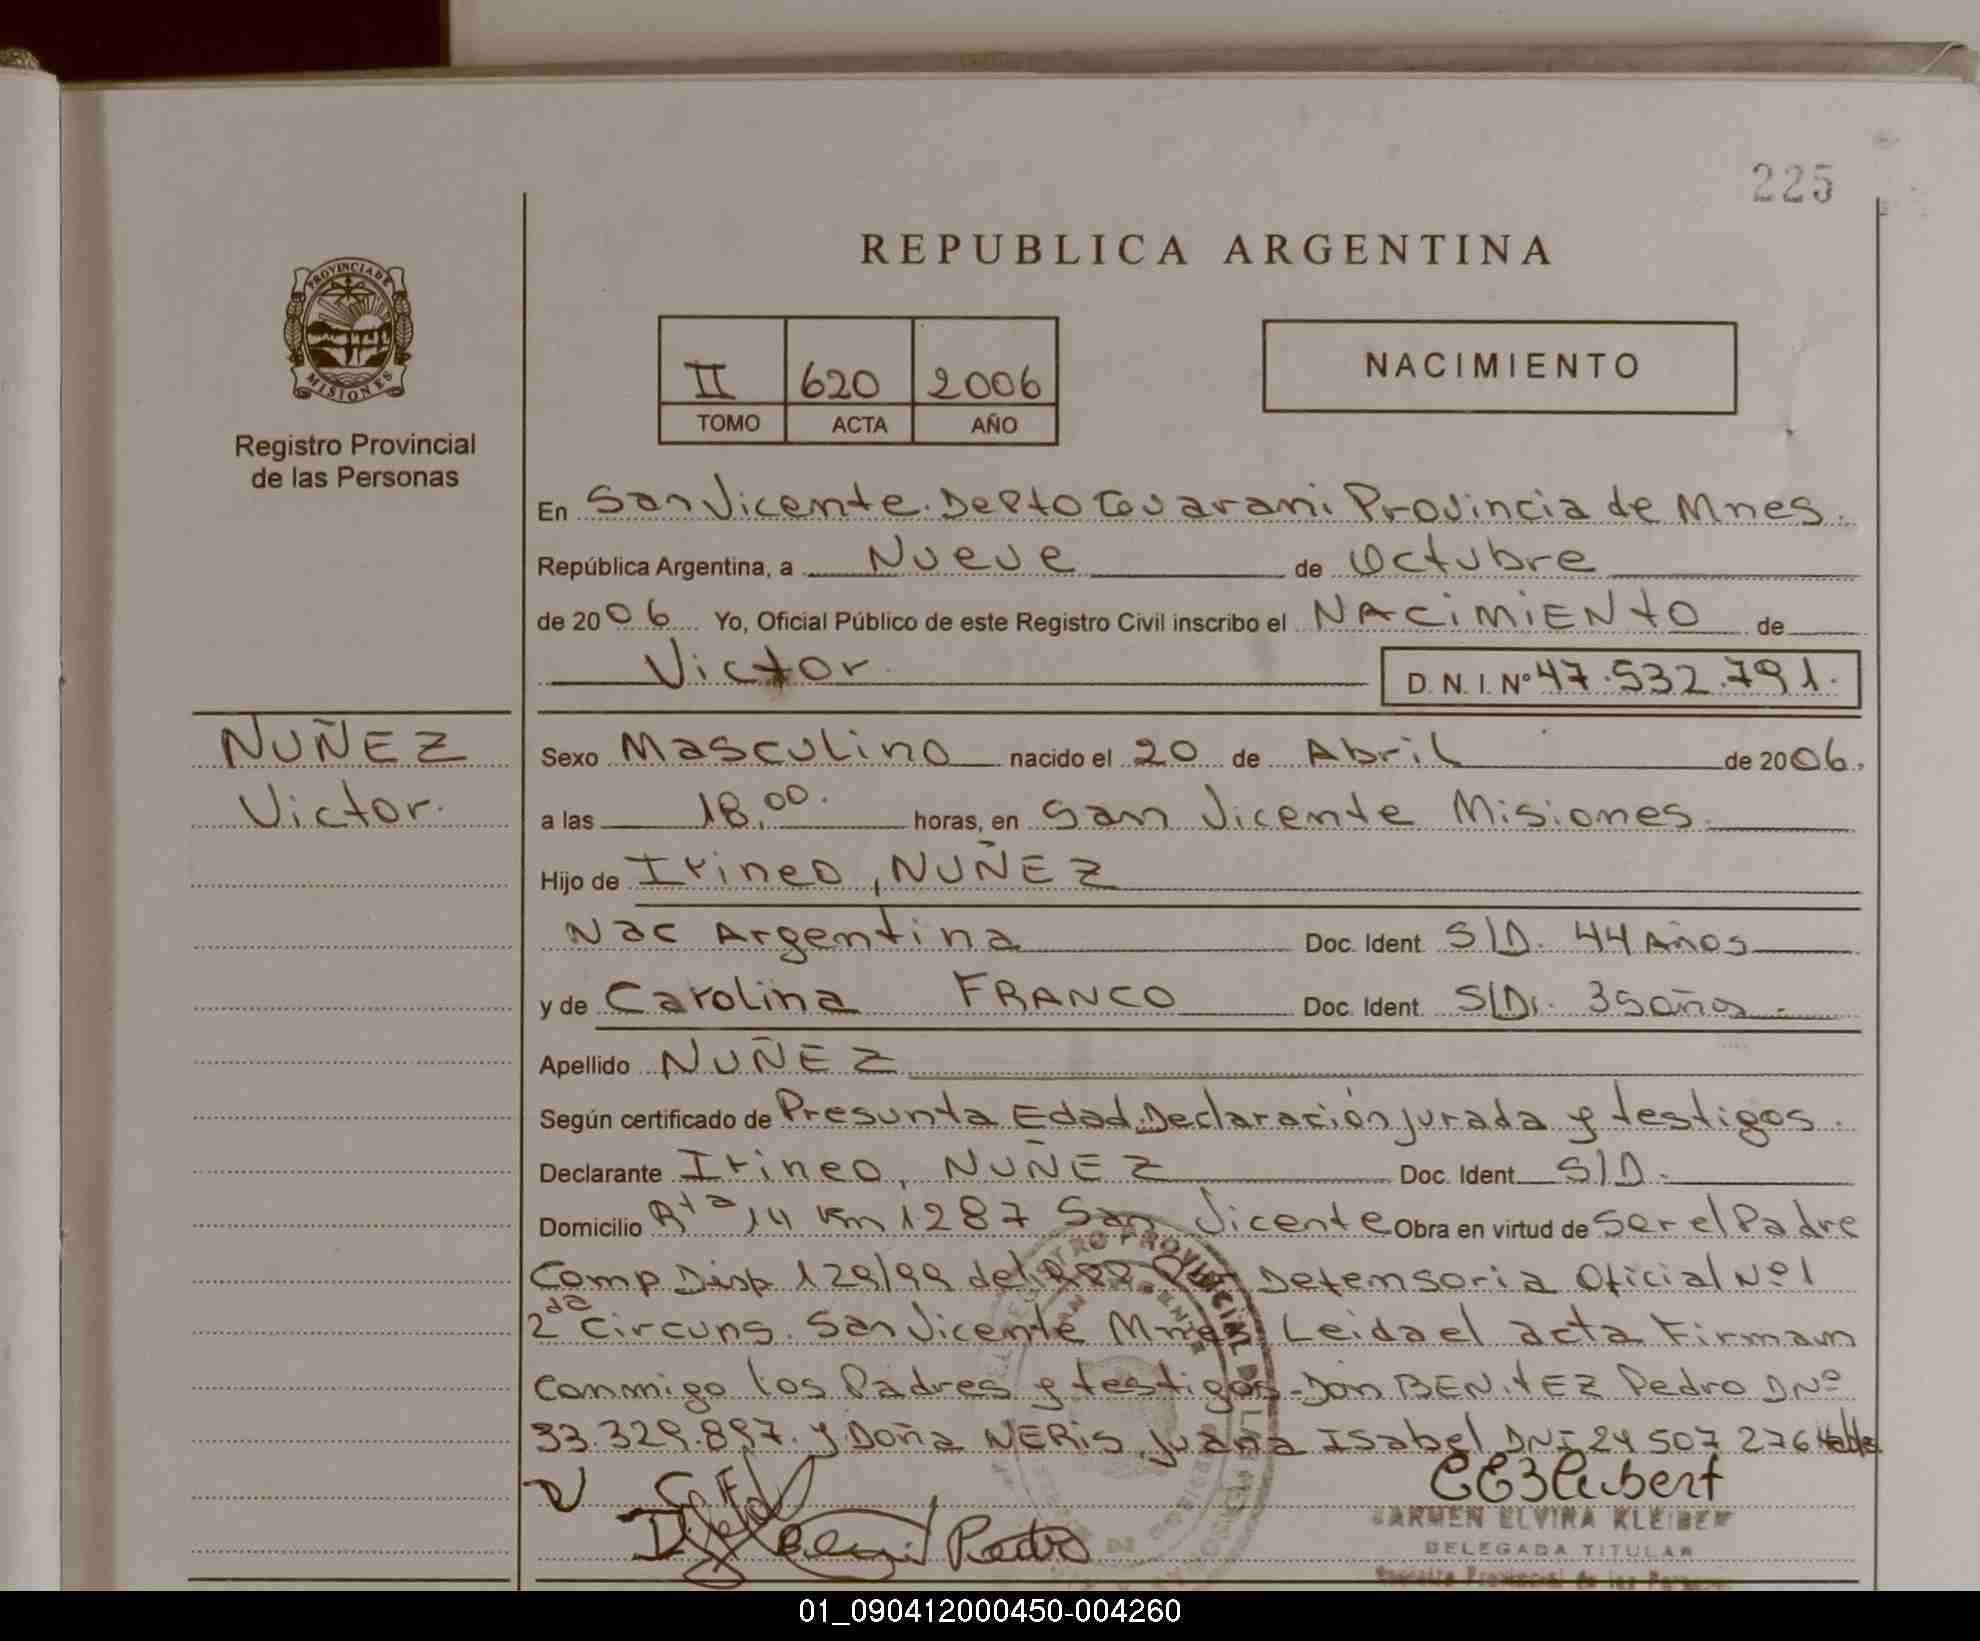 225
REPUBLICA ARGENTINA
PROVINCIA DE
MISIONES
Registro Provincial
de las Personas
II 620 2006
TOMO ACTA AÑO
NACIMIENTO
En San Vicente. Depto Guarani Provincia de Mnes.
República Argentina, a Nueve de Octubre
de 2006 Yo, Oficial Público de este Registro Civil inscribo el NACiMiENtO de
Victor D. N. I. Nº 47.532.791.
NUÑEZ
Victor.
Sexo Masculino nacido el 20 de Abril de 2006.
a las 18,00. horas, en San Vicente Misiones.
Hijo de Irineo, NUÑEZ
Nac Argentina Doc. Ident. S/D. 44 Años
y de Carolina FRANCO Doc. Ident. S/D. 35 años
Apellido NUÑEZ
Según certificado de Presunta Edad Declaración jurada y testigos.
Declarante Irineo, NUÑEZ Doc. Ident. S/D.
Domicilio Rta 14 Km 1287 San Vicente Obra en virtud de Ser el Padre
Comp. Disp. 129/99 del Defensoria Oficial Nº 1
2da Circuns. San Vicente Leida el acta Firman
Conmigo los Padres y testigos Don BENitEZ Pedro DNº
33.329.897. y Doña NERis Juana ISabel DNI 24 507 276
Pedro
CARMEN ELVIRA KLEIBER
DELEGADA TITULAR
Registro Provincial de las Personas
01_090412000450-004260